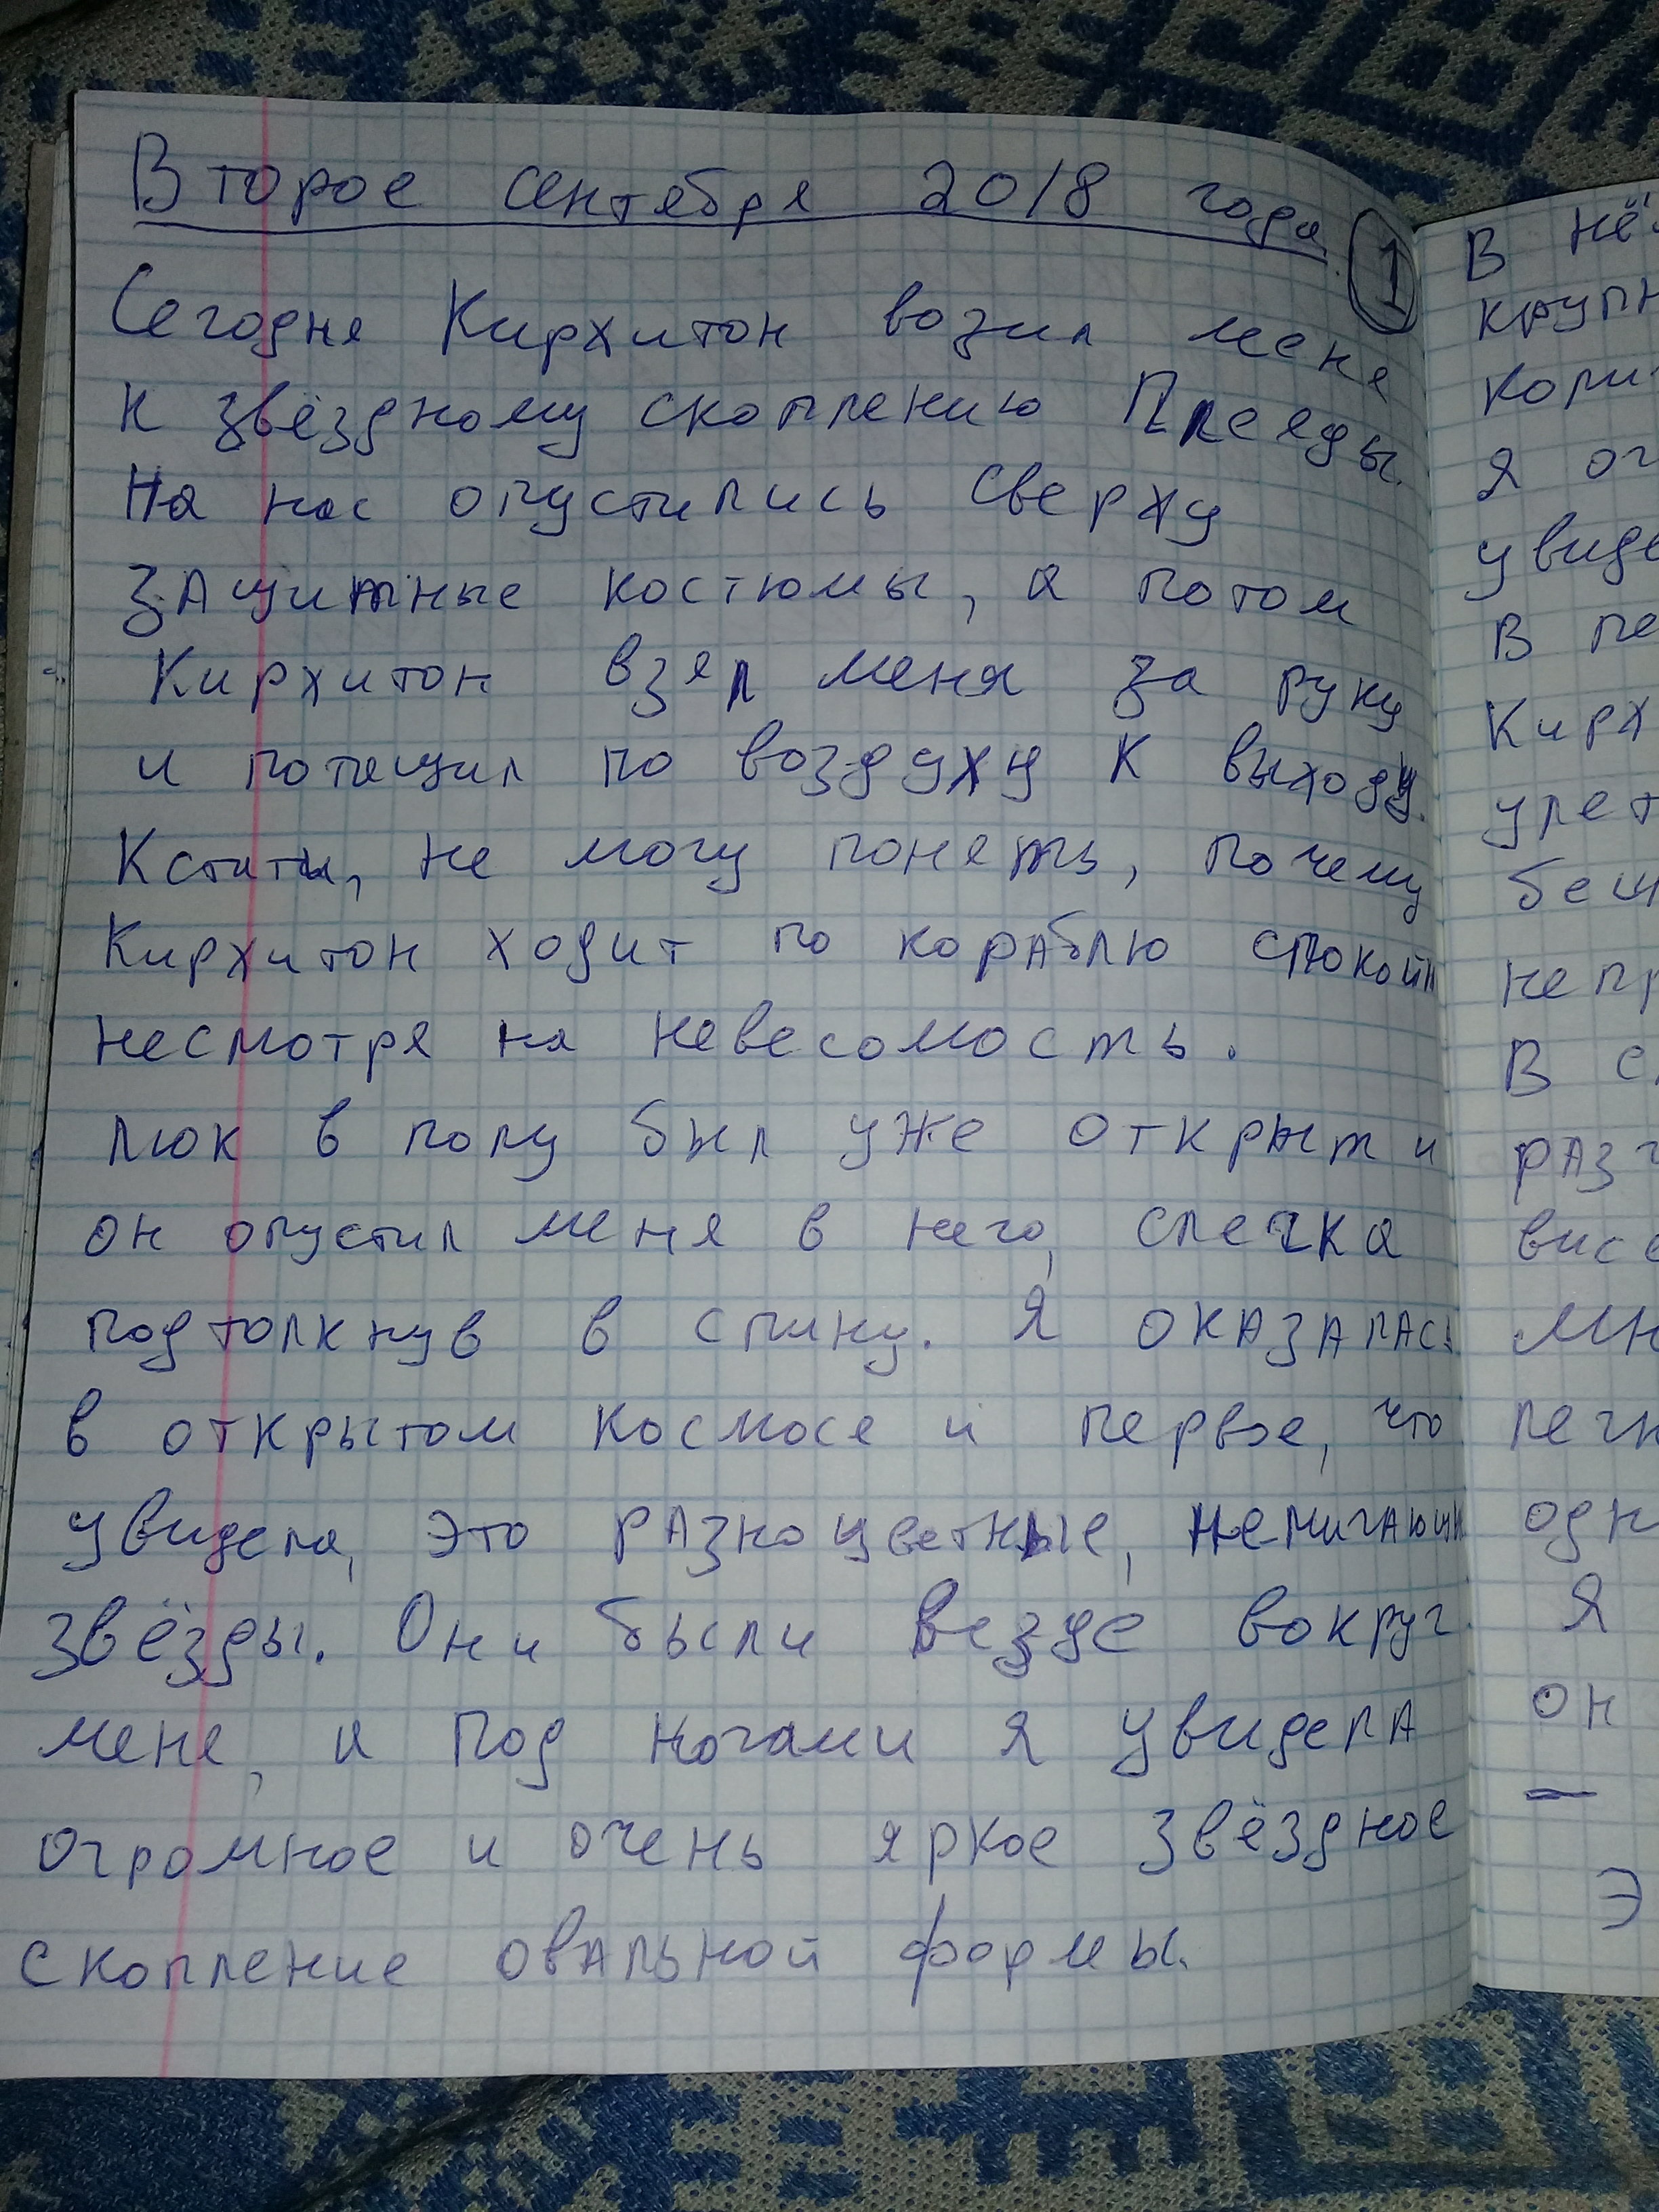 Второе сентября 2018 года.
1
Сегодня Кирхитон возил меня
к звёздному скоплению Плеяды.
На нас опустились сверху
защитные костюмы, а потом
Кирхитон взял меня за руку
и потащил по воздуху к выходу.
Кстати, не могу понять, почему
Кирхитон ходит по кораблю спокойн
несмотря на невесомость.
люк в полу был уже открыт и
он опустил меня в него, слегка
подтолкнув в спину. Я оказалась
в открытом космосе и первое, что
увидела, это разноцветные, немигающи
звёзды. Они были везде вокруг
меня, а под ногами я увидела
огромное и очень яркое звёздное
скопление овальной формы.
В нё
крупн
кори
я ог
увиде
в пе
Кирх
улет
беш
непр
В с
разг
висе
мн
легк
одн
Я
он
—
Э